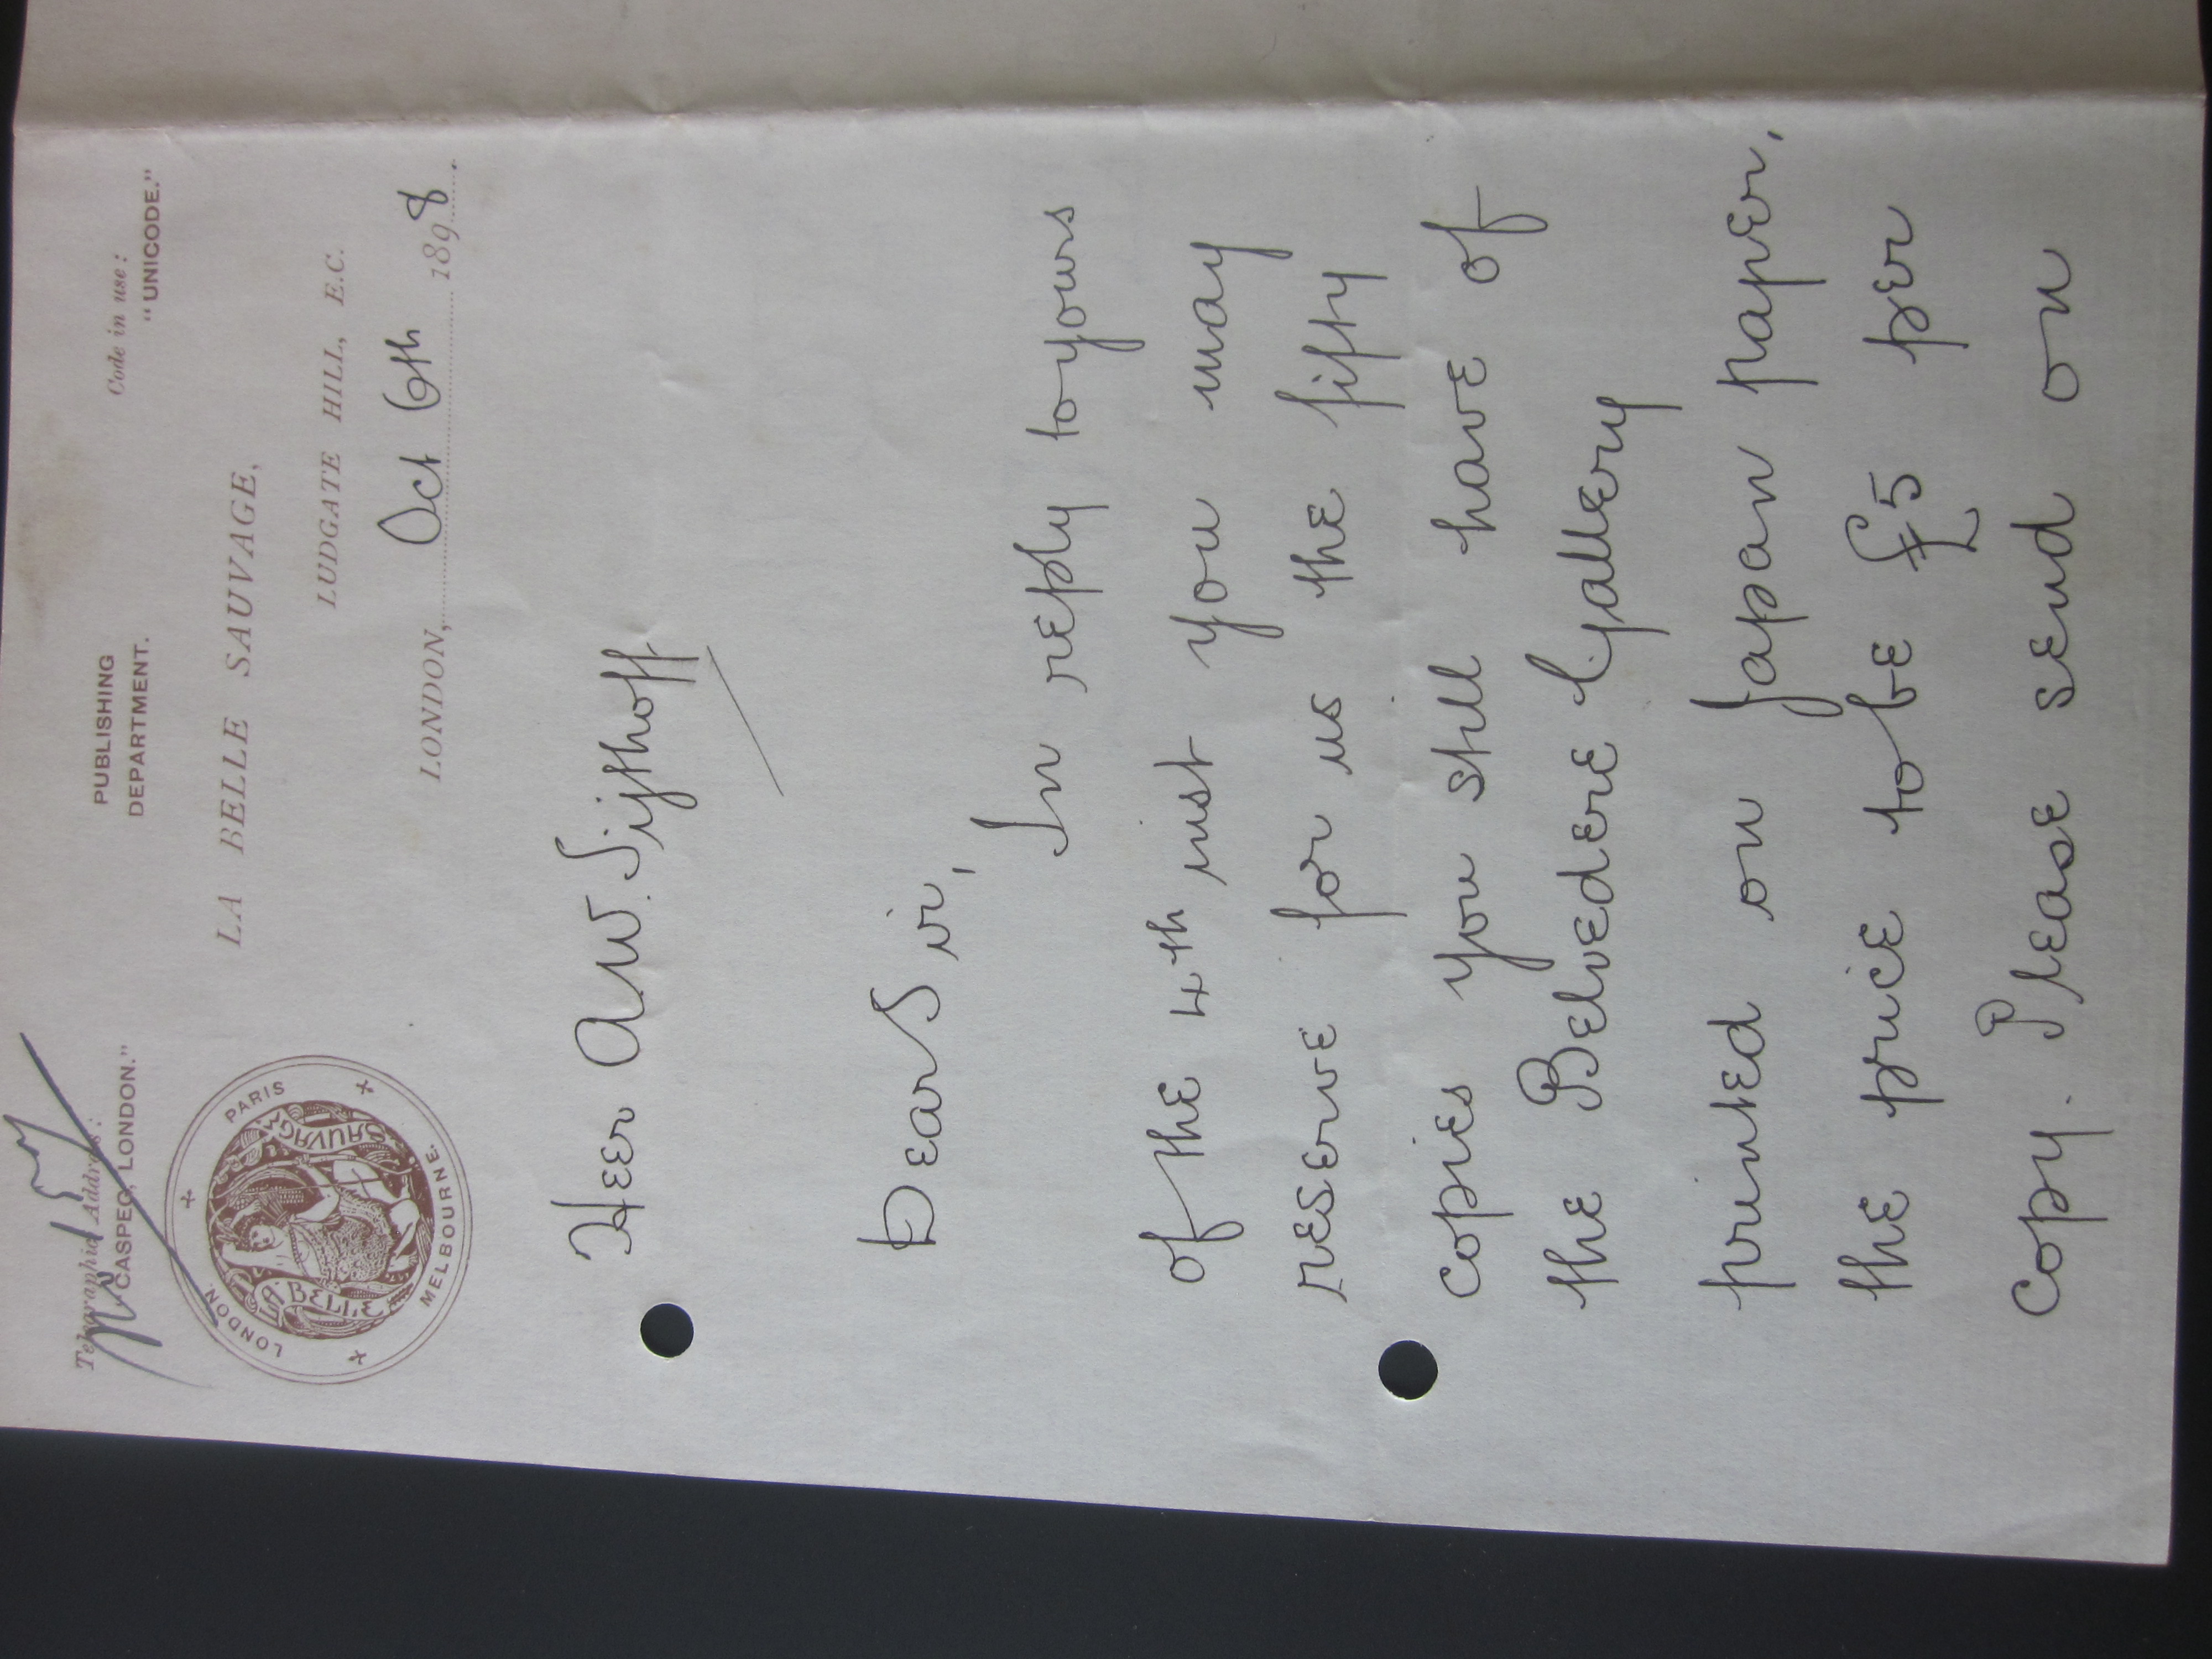 No 157
Telegraphic Address:
"CASPEG, LONDON."
PUBLISHING
DEPARTMENT.
Code in use:
"UNICODE."
LONDON. PARIS MELBOURNE.
LA BELLE SAUVAGE
LA BELLE SAUVAGE,
LUDGATE HILL, E.C.
LONDON, Oct 6th 1898.
Heer A.W. Sijthoff
Dear Sir,
In reply to yours
of the 4th inst you may
reserve for us the fifty
copies you still have of
the Belvedere Gallery
printed on Japan paper,
the price to be £5 per
copy. Please send on